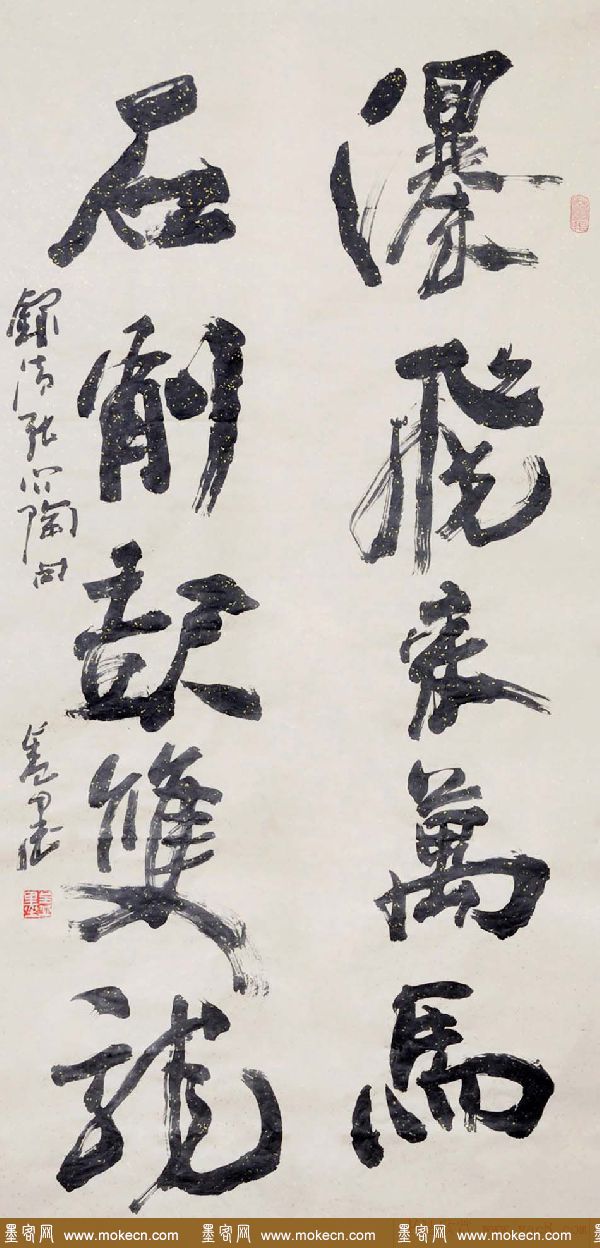 瀑飛來萬馬
石削起雙龍
錄清張問陶句
墨客网 www.mokecn.com 墨客网 www.mokecn.com 墨客网 www.mokecn.com